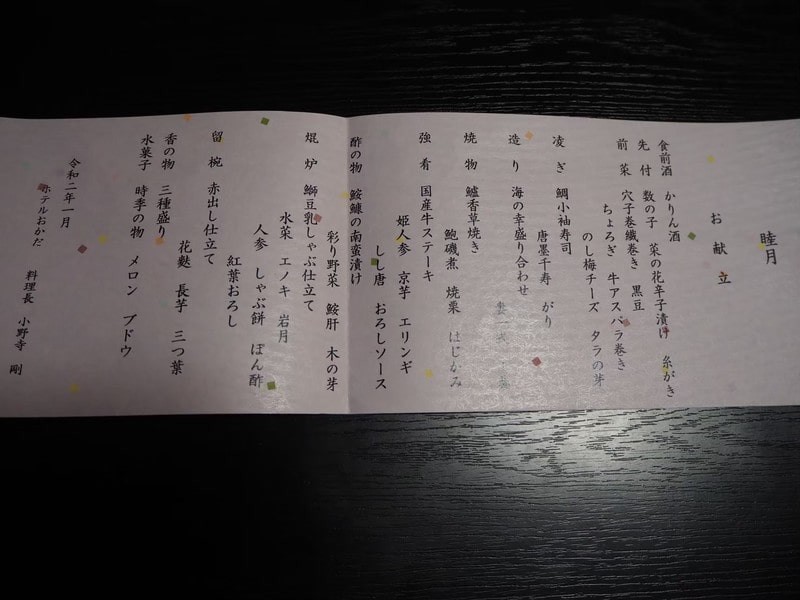 睦月
お献立
食前酒 かりん酒
先付 数の子 菜の花辛子漬け 糸がき
前菜 穴子巻繊巻き 黒豆
ちょろぎ 牛アスパラ巻き
のし梅チーズ タラの芽
凌ぎ 鯛小袖寿司
唐墨千寿 がり
造り 海の幸盛り合わせ
妻一式
焼物 鱸香草焼き
鮑磯煮 焼栗 はじかみ
強肴 国産牛ステーキ
姫人参 京芋 エリンギ
しし唐 おろしソース
酢の物 鮟鱇の南蛮漬け
彩り野菜 鮟肝 木の芽
焜炉 鰤豆乳しゃぶ仕立て
水菜 エノキ 岩月
人参 しゃぶ餅 ぽん酢
紅葉おろし
留椀 赤出し仕立て
花麩 長芋 三つ葉
香の物 三種盛り
水菓子 時季の物 メロン ブドウ
令和二年一月
ホテルおかだ
料理長 小野寺 剛